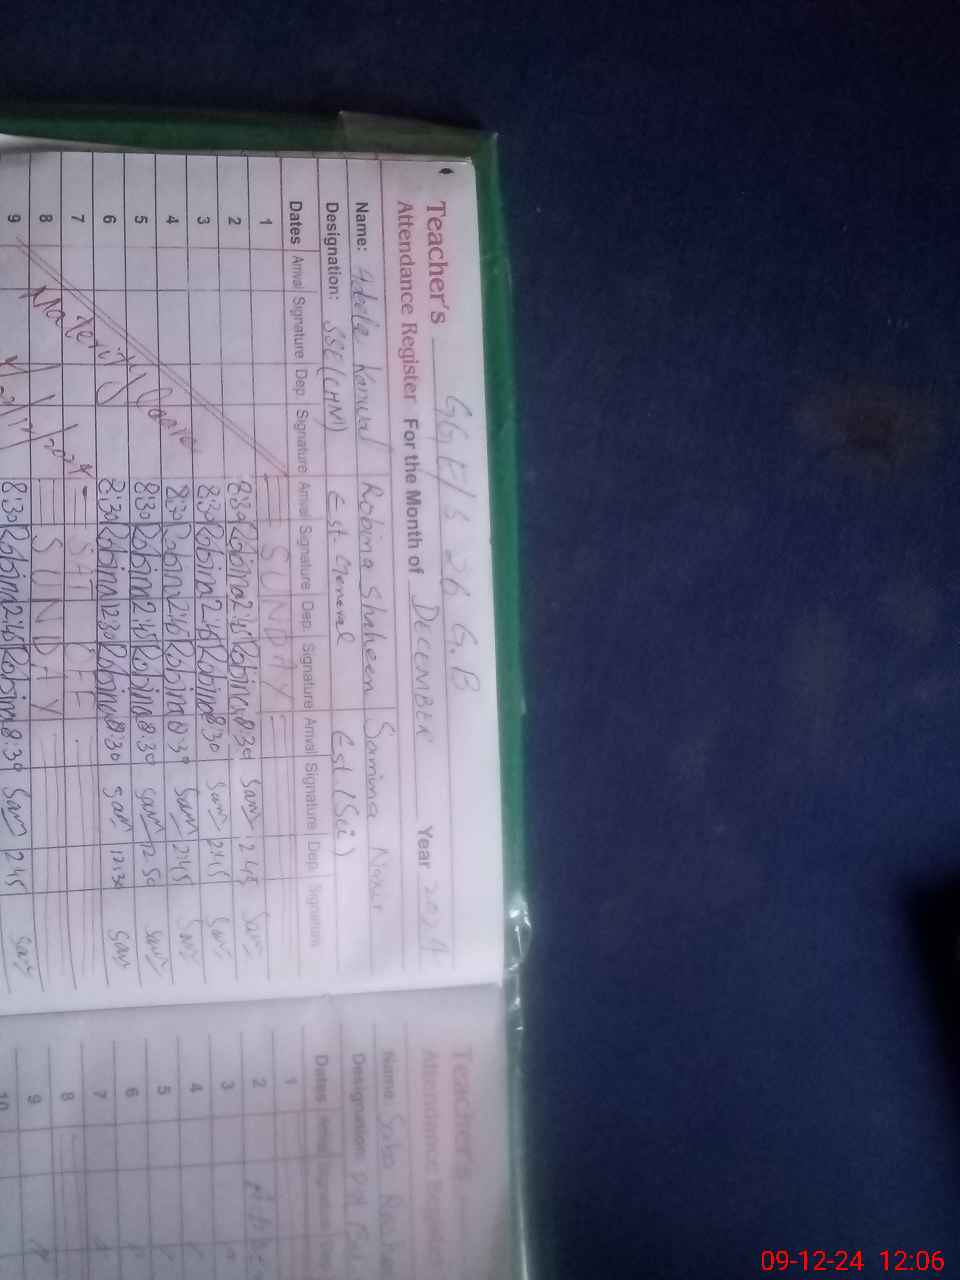 Teacher's GGE/S 36 G.B
Attendance Register For the Month of DECEMBER Year 2024
Name: Adeela Kanwal Robina Shaheen Samina Nazir
Designation: SSE (CHM) Est. General Est. (Sci)
Dates Arrival Signature Dep. Signature Arrival Signature Dep. Signature Arrival Signature Dep. Signature
1 SUNDAY
2 8:30 Robina 2:45 Robina 8:30 Sam 2:45 Sam
3 8:30 Robina 2:45 Robina 8:30 Sam 2:45 Sam
4 8:30 Robina 2:45 Robina 8:30 Sam 2:45 Sam
5 8:30 Robina 2:45 Robina 8:30 Sam Sam
6 8:30 Robina 12:30 Robina 8:30 Sam 12:30 Sam
7 SAT OFF
8 SUNDAY
9 8:30 Robina 2:45 Robina 8:30 Sam 2:45 Sam
Maternity Leave
Teacher's
Attendance Register
Name: Saba
Designation:
Dates
1
2
3
4
5
6
7
8
9
10
09-12-24 12:06